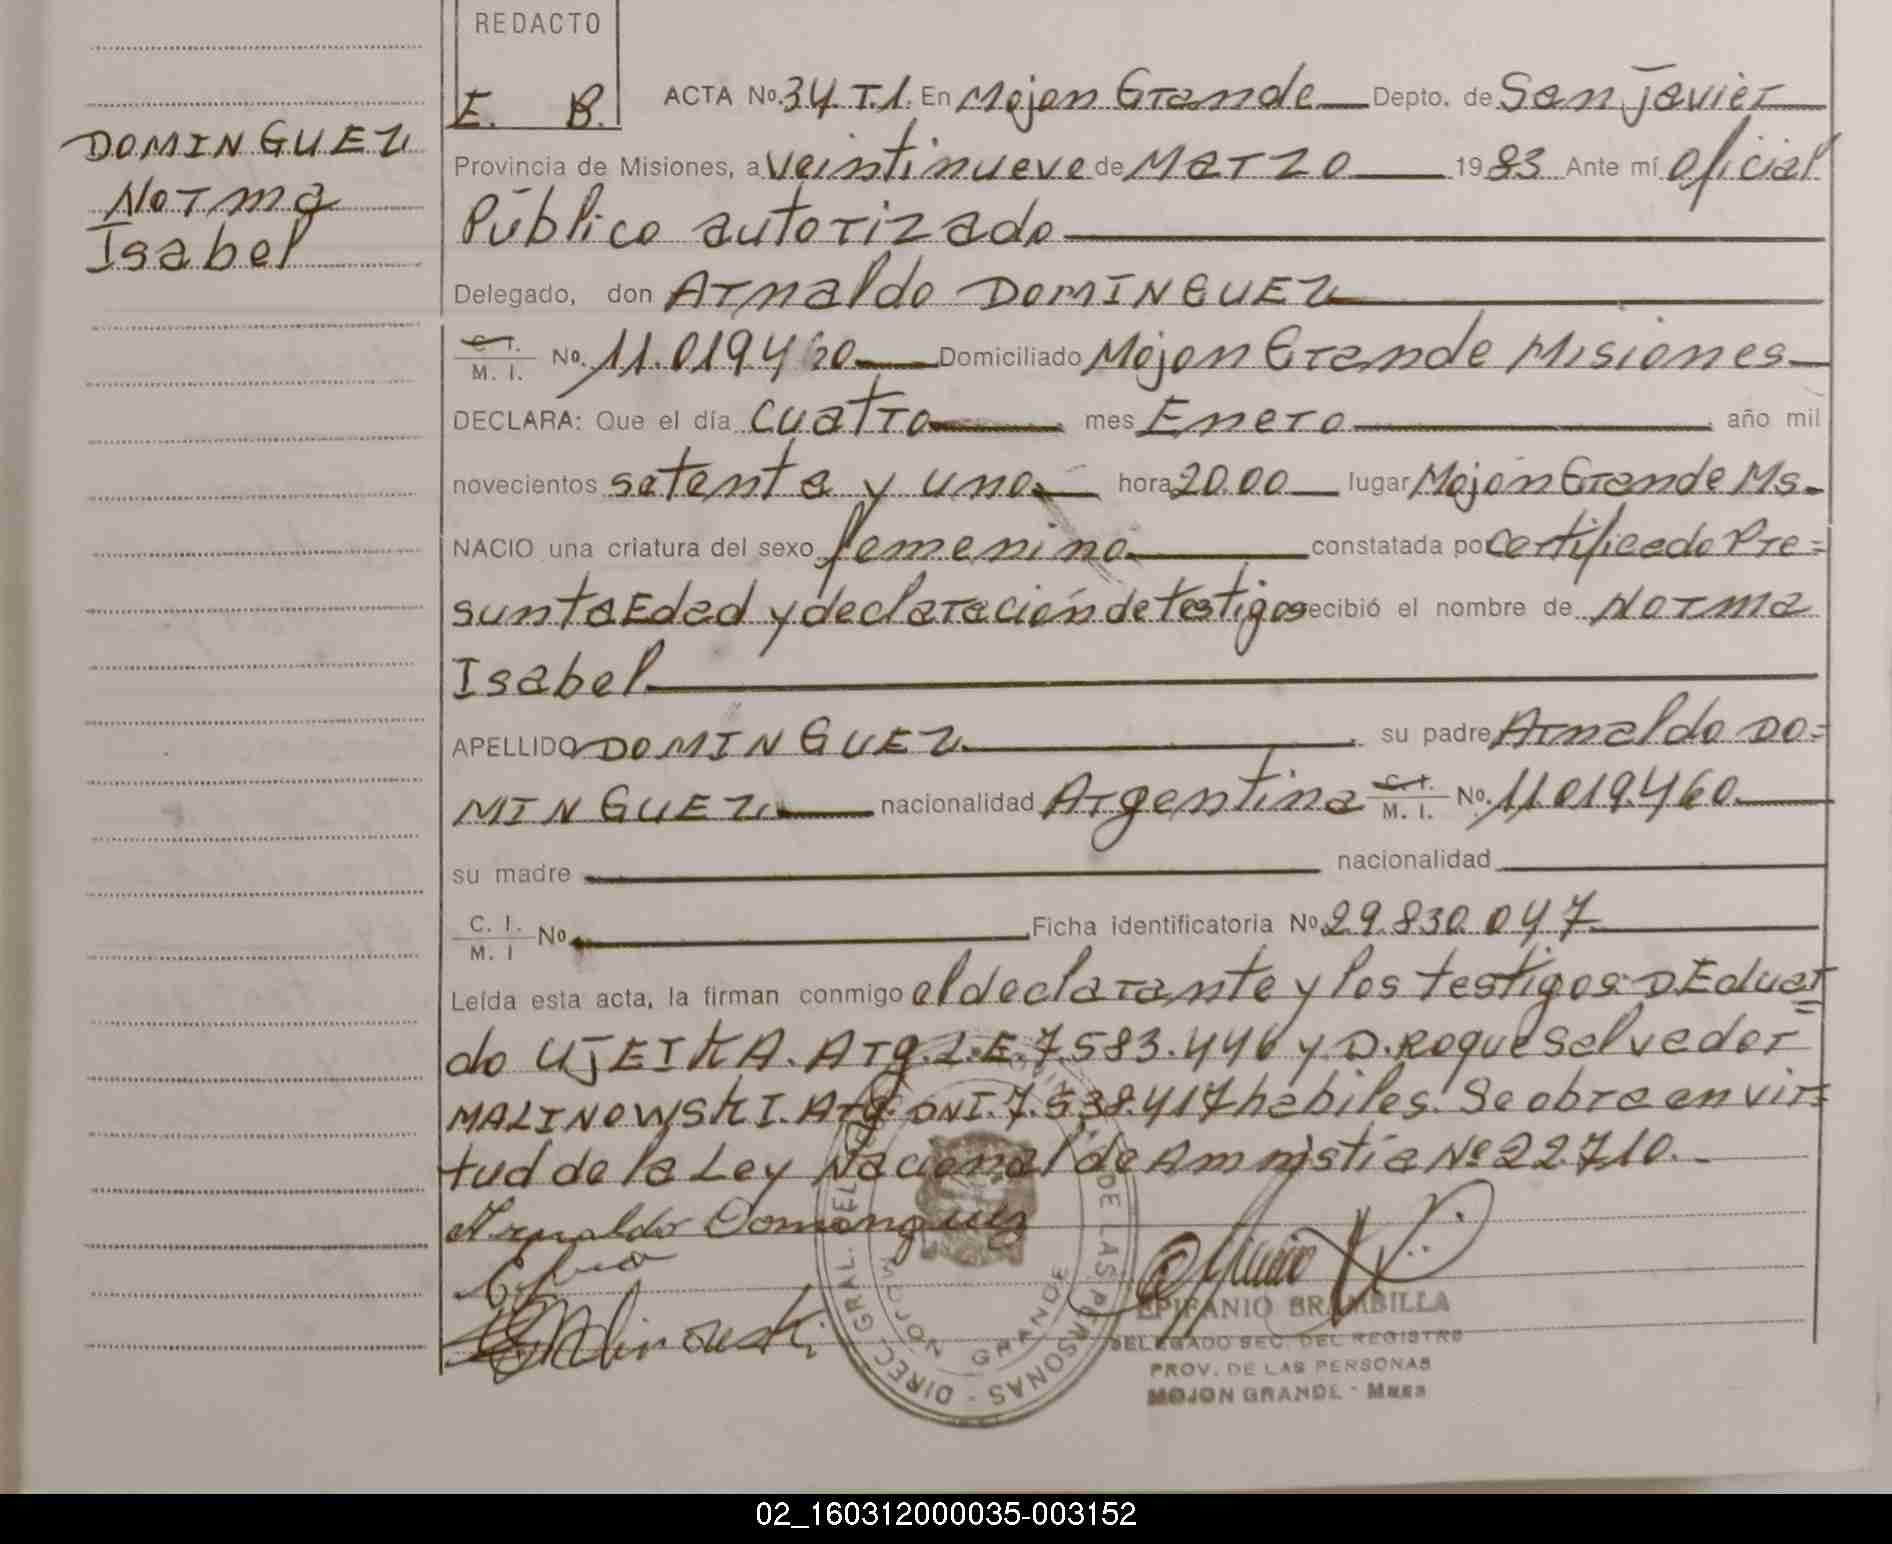 REDACTO
E. B.
DOMINGUEZ
Norma
Isabel
ACTA No. 34 T.1. En Mojon Grande Depto. de San Javier
Provincia de Misiones, a veintinueve de Marzo 1983 Ante mí oficial
Público autorizado
Delegado, don Arnaldo DOMINGUEZ
C. I. / M. I. No. 11.019.460 Domiciliado Mojon Grande Misiones
DECLARA: Que el día cuatro mes Enero año mil
novecientos setenta y uno hora 20.00 lugar Mojón Grande Ms.
NACIO una criatura del sexo femenino constatada por certificado Pre=
sunta Edad y declaración de testigos recibió el nombre de Norma
Isabel
APELLIDO DOMINGUEZ su padre Arnaldo DO=
MINGUEZ nacionalidad Argentina C. I. / M. I. No. 11.019.460
su madre nacionalidad
C. I. / M. I No Ficha identificatoria No 29.830.047
Leída esta acta, la firman conmigo el declarante y los testigos: D. Eduar=
do UJEIKA. Arg. L.E. 7.583.446 y D. Roque Salvador
MALINOWSKI. Arg. DNI. 7.538.417 habiles. Se obra en vir=
tud de la Ley Nacional de Amnistía Nº 22.710.
Arnaldo Dominguez
Malinowski
DIREC. GRAL. DEL DE LAS PERSONAS -
MOJON GRANDE
EPIFANIO BRAMBILLA
DELEGADO SEC. DEL REGISTRO
PROV. DE LAS PERSONAS
MOJON GRANDE - Mnes
02_160312000035-003152